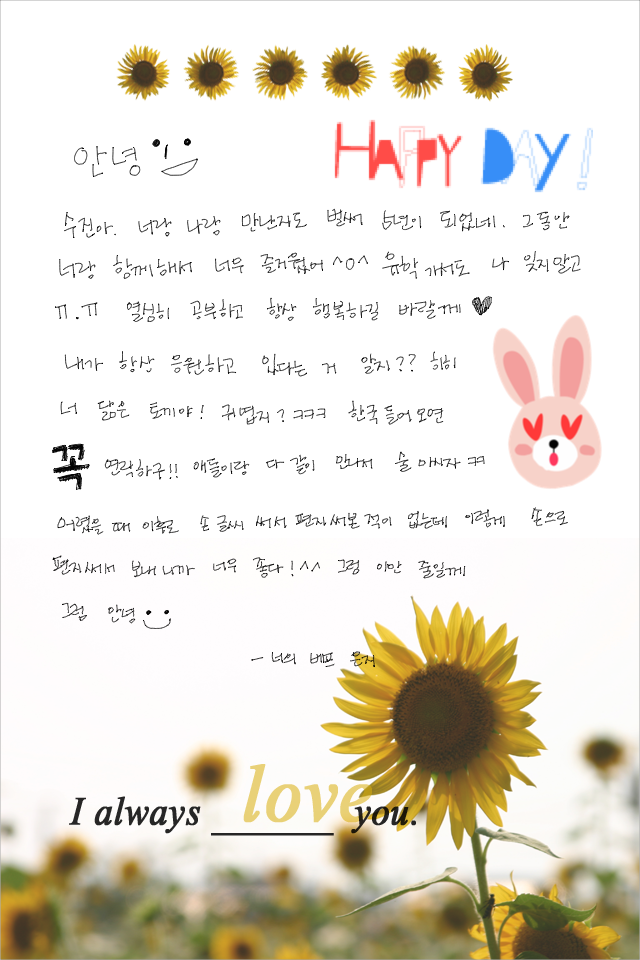 안녕
HAPPY DAY!
수진아. 너랑 나랑 만난지도 벌써 6년이 되었네. 그동안
너랑 함께해서 너무 즐거웠어 ^o^ 유학 가서도 나 잊지말고
ㅠ.ㅠ 열심히 공부하고 항상 행복하길 바랄께 ♥
내가 항상 응원하고 있다는 거 알지?? 히히
너 닮은 토끼야! 귀엽지? ㅋㅋㅋ 한국 들어오면
꼭 연락하구!! 애들이랑 다 같이 만나서 술 마시자 ㅋㅋ
어렸을 때 이후로 손글씨 써서 편지써본 적이 없는데 이렇게 손으로
편지써서 보내니까 너무 좋다! ^^ 그럼 이만 줄일께
그럼 안녕
- 너의 베프 은지
I always love you.